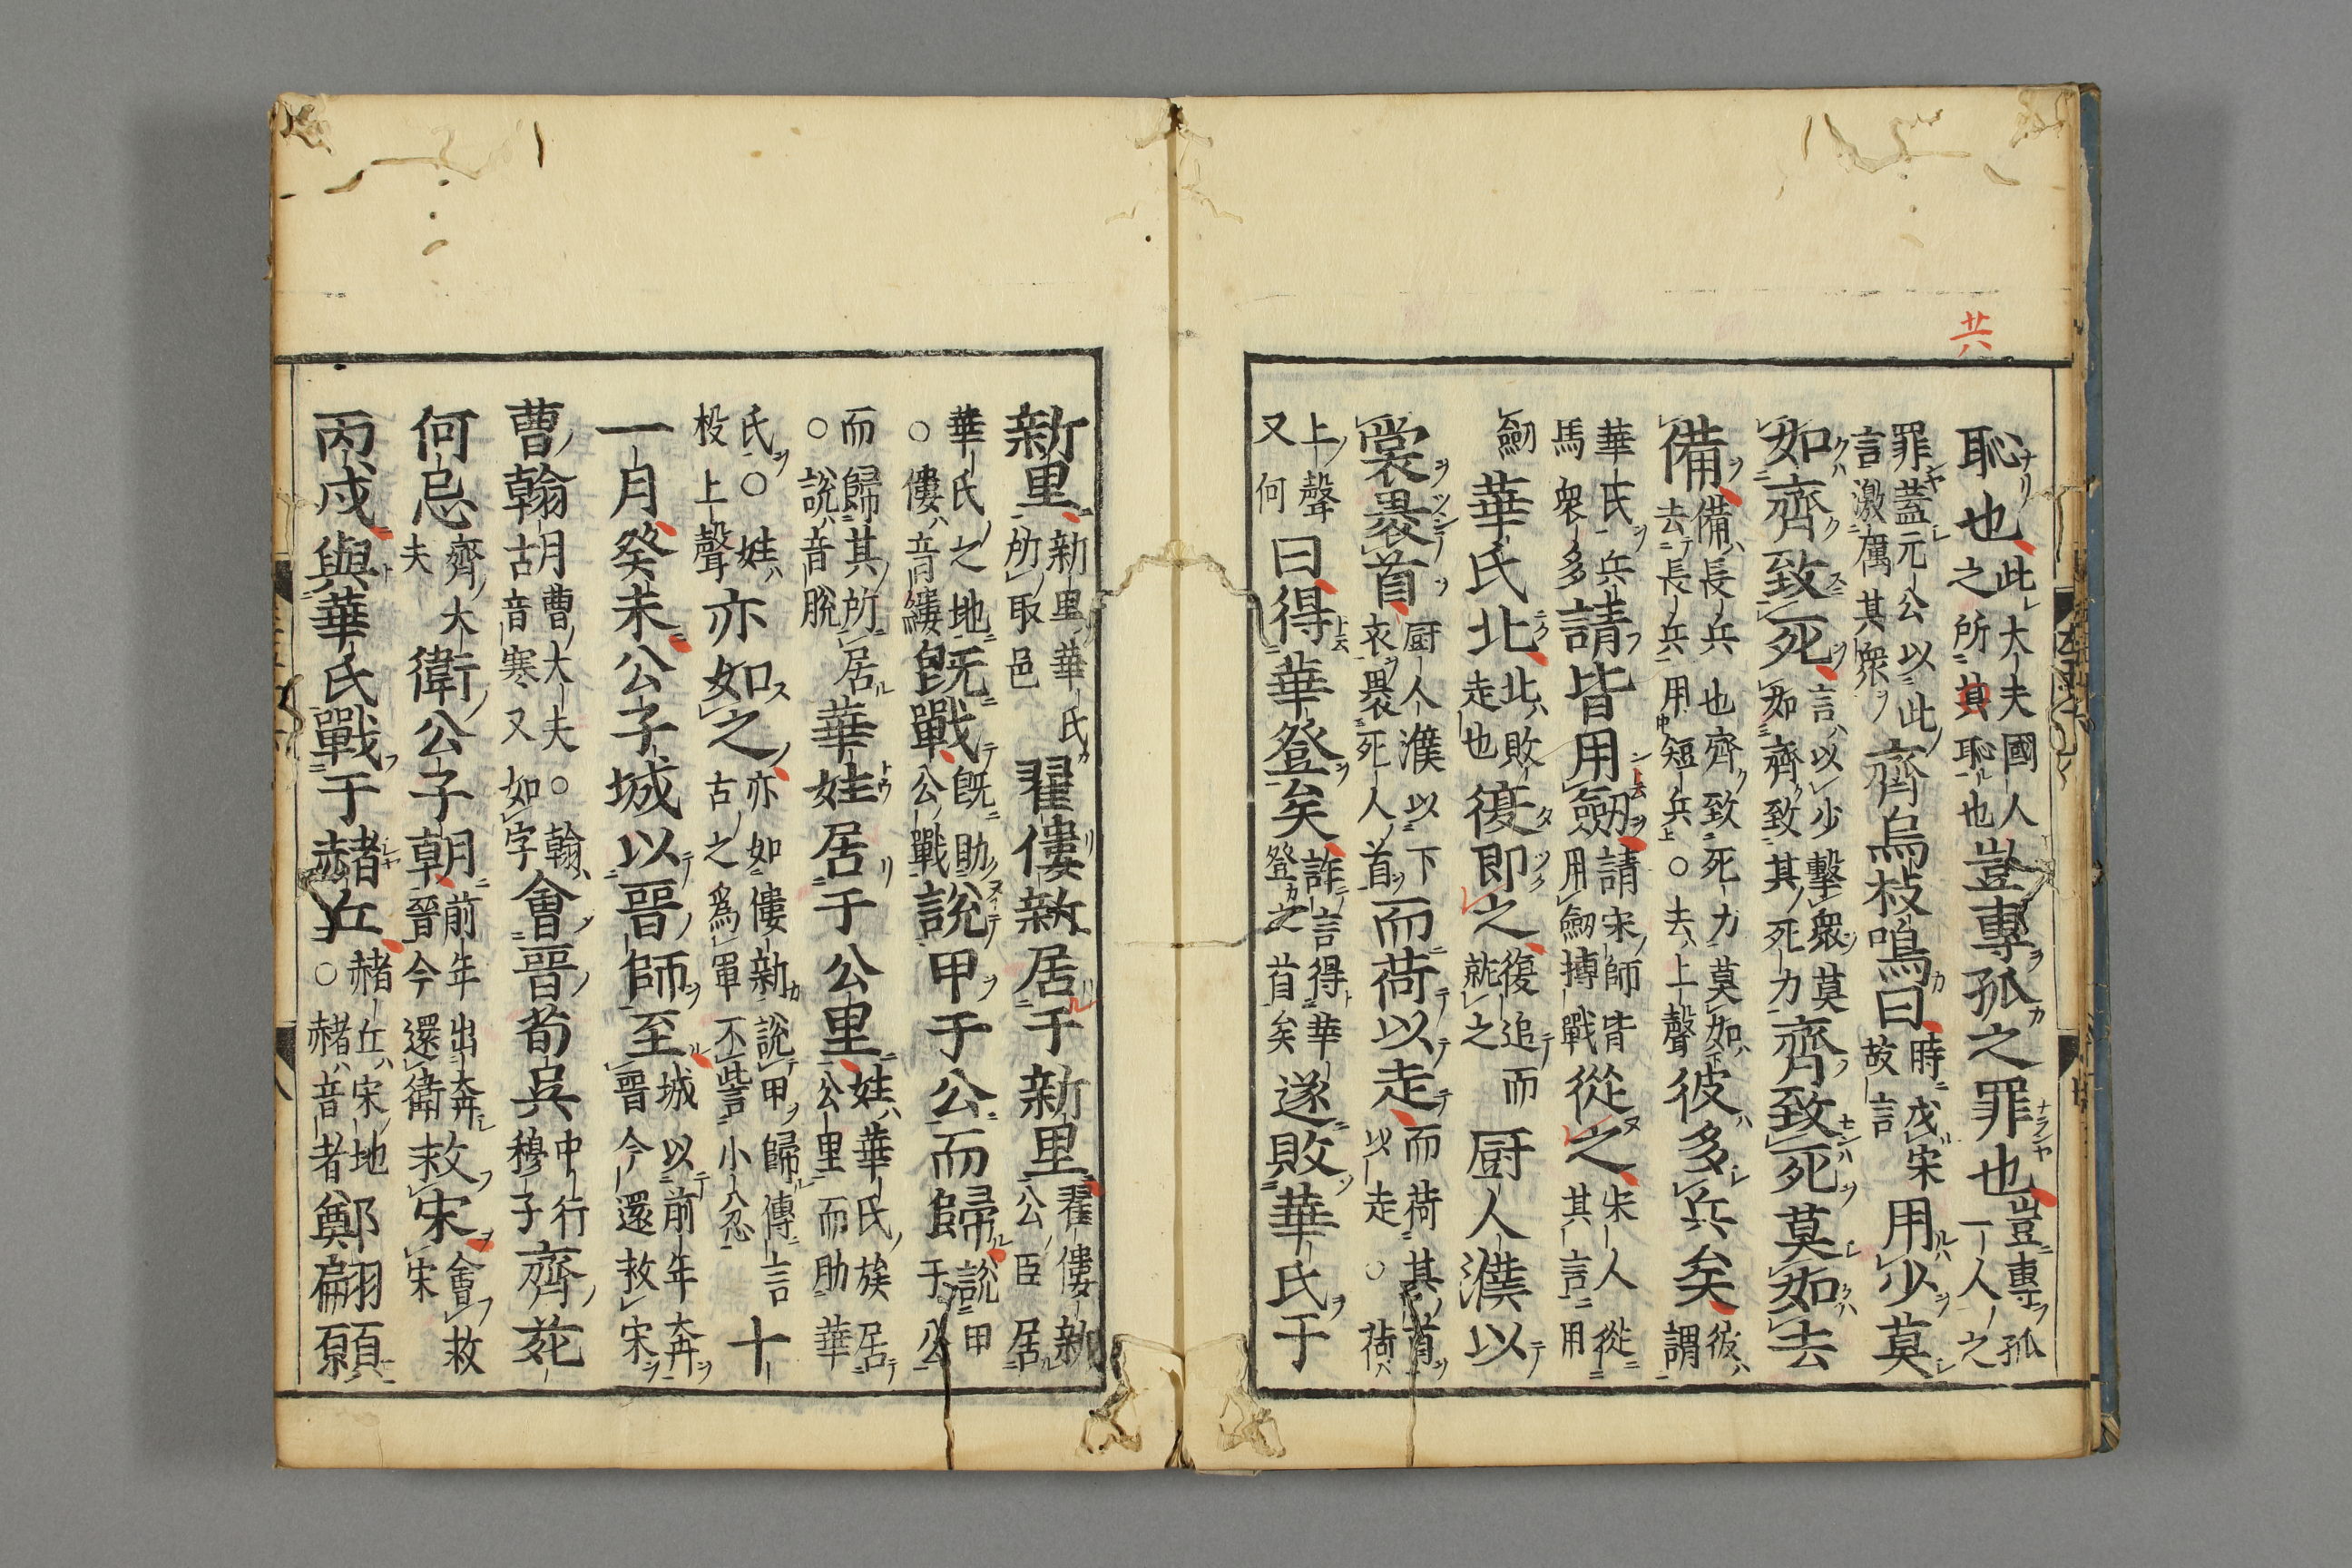 共
恥也此大夫國人之所共恥也豈專孤之罪也豈專孤一人之
罪蓋元公以此言激厲其衆齊烏枝鳴曰時戍宋故言用少莫
如齊致死言以少擊衆莫如齊致其死力齊致死莫如去
備備長兵也齊致死力莫如去長兵用短兵○去上聲彼多兵矣彼謂
華氏兵馬衆多請皆用劒請宋師皆用劒搏戰從之宋人從其言用
劒華氏北北敗走也復即之復追而就之厨人濮以
裳裹首厨人濮以下衣裹死人首而荷以走而荷其首以走○荷
上聲又何曰得華登矣詐言得華登之首矣遂敗華氏于
新里新里華氏所取邑翟僂新居于新里翟僂新公臣居
華氏之地○僂音縷旣戰旣助公戰說甲于公而歸說甲于公
而歸其所居○說音脫華姓居于公里姓華氏族居公里而助華
氏○姓上聲亦如之亦如僂新說甲歸傳言古之為軍不呰小忿十
一月癸未公子城以晉師至城以前年奔晉今還救宋
曹翰胡曹大夫○翰古音寒又如字會晉荀吳中行穆子齊苑
何忌齊大夫衛公子朝前年出奔晉今還衛救宋會救宋
丙戌與華氏戰于赭丘赭丘宋地○赭音者鄭翩願